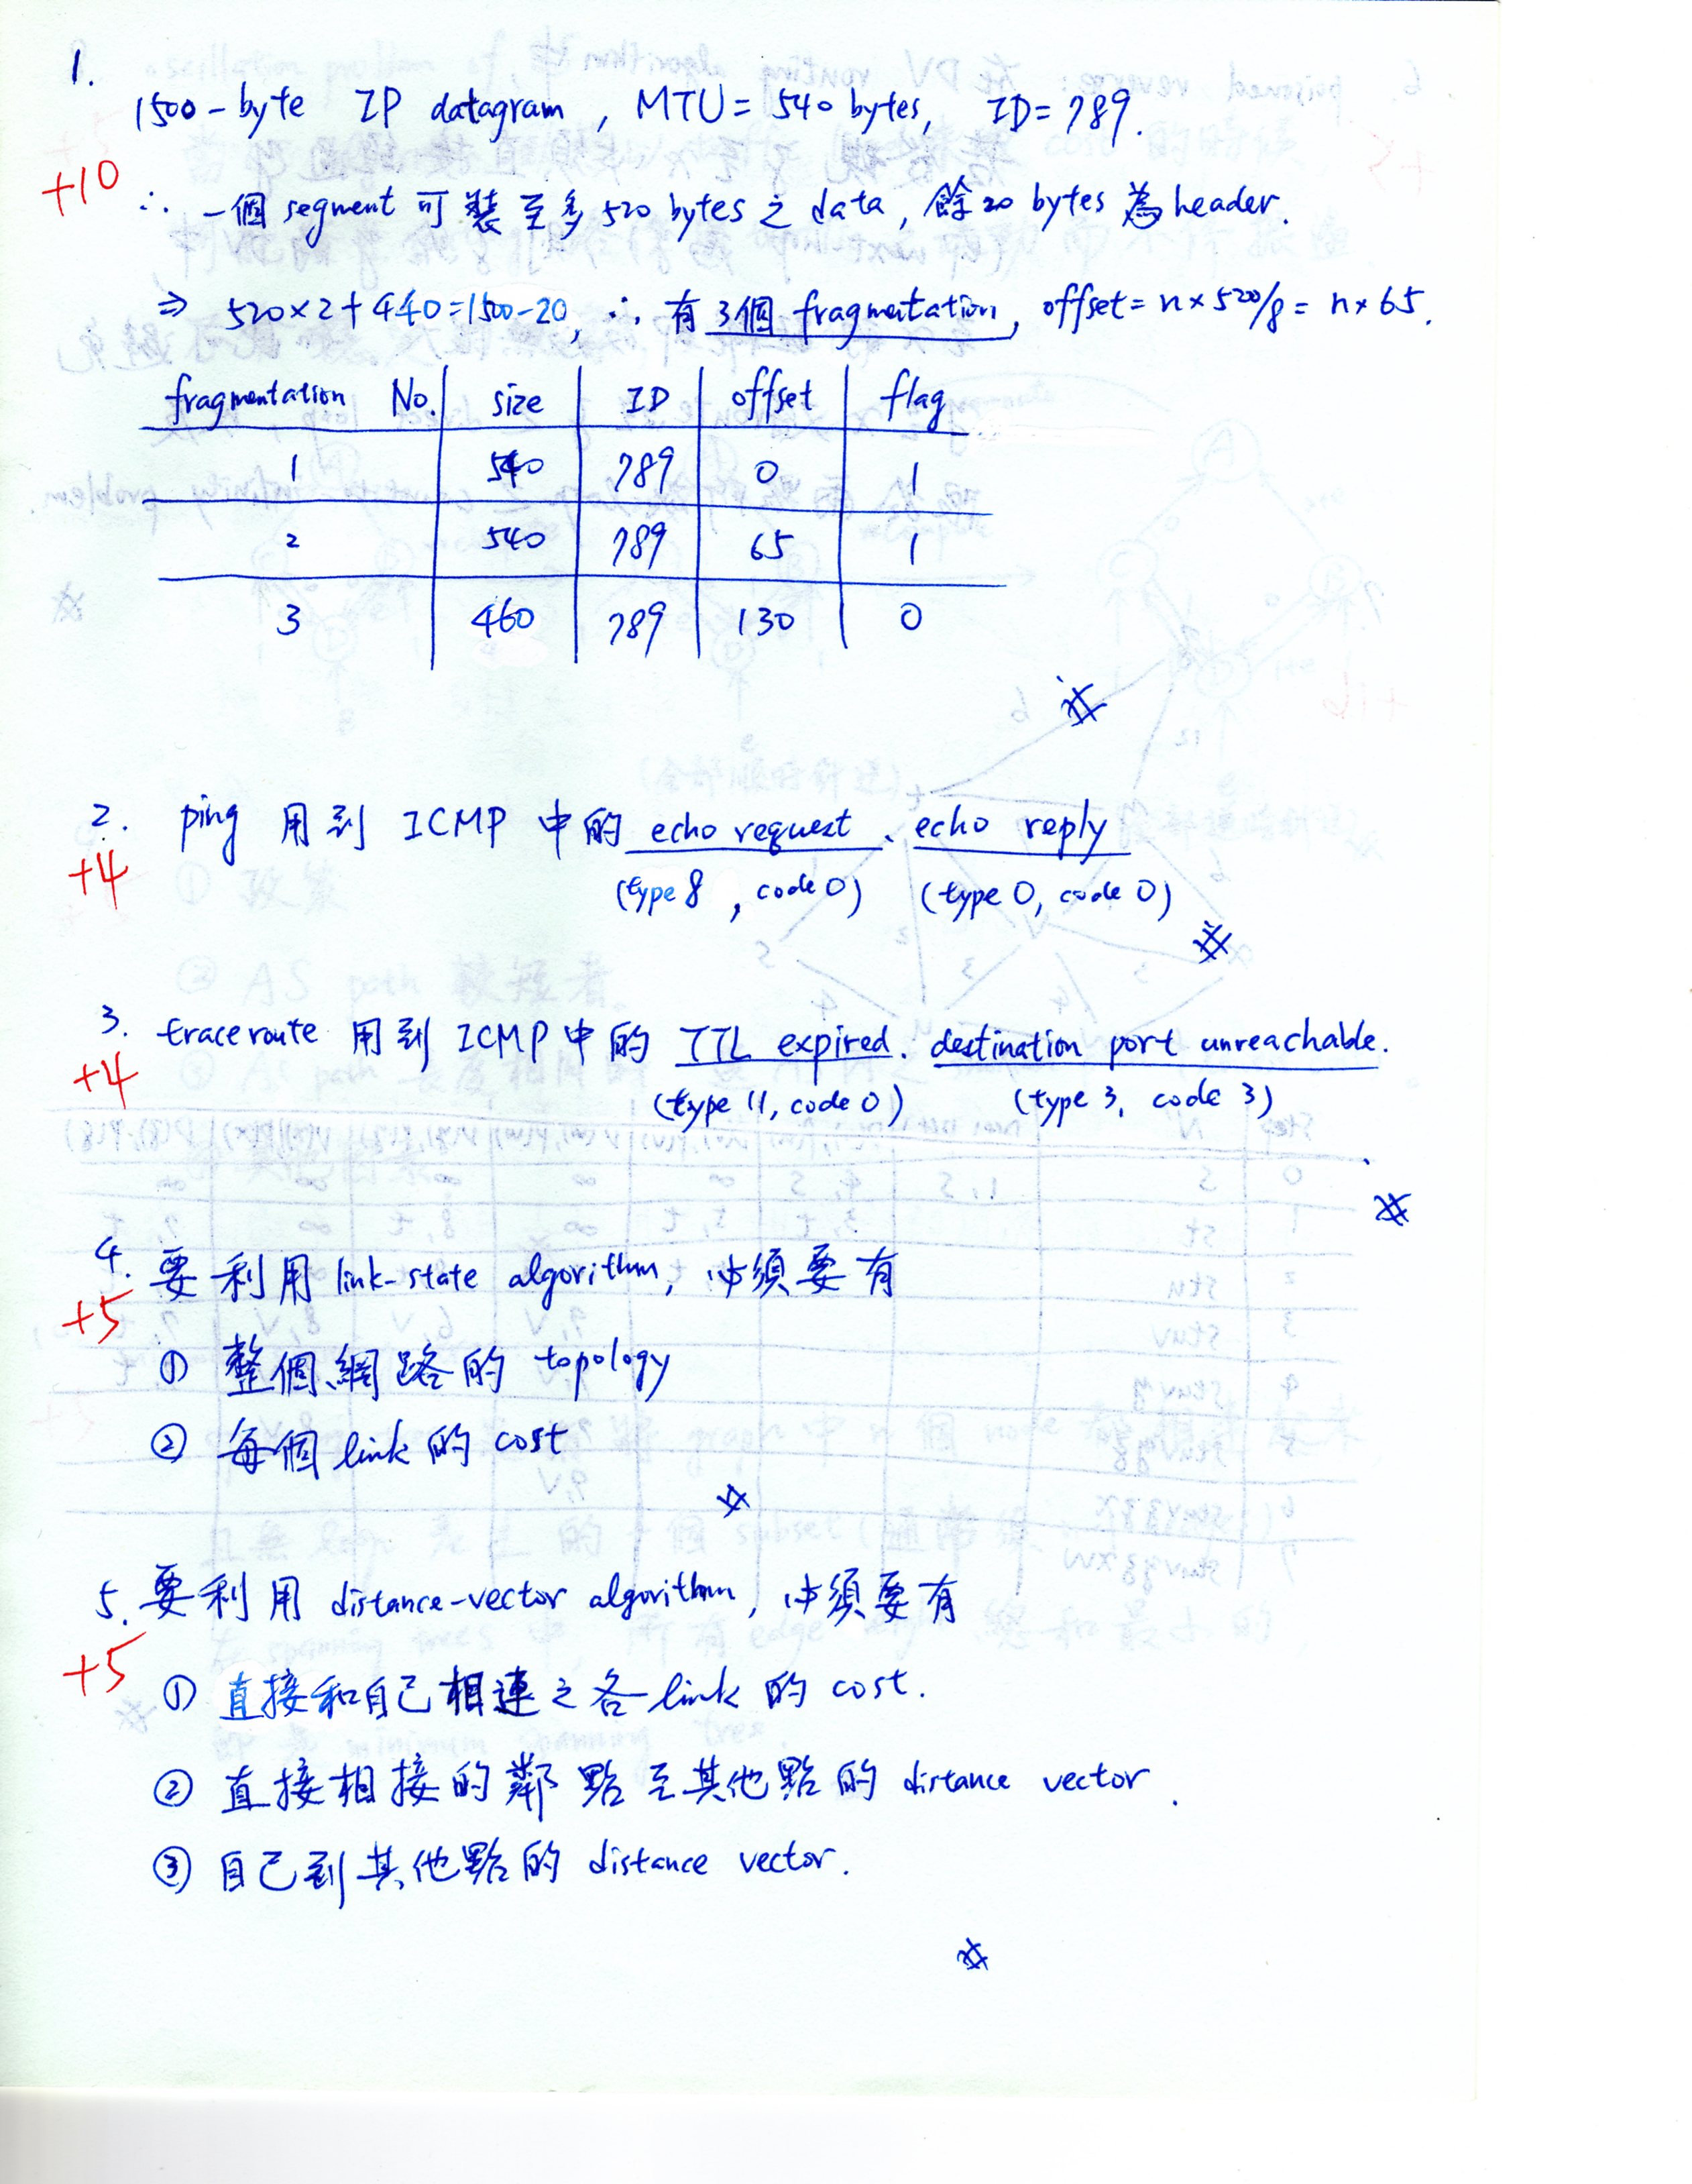 1.
1500-byte IP datagram , MTU = 540 bytes, ID = 789.
+10
∴ 一個 segment 可裝至多 520 bytes 之 data , 餘 20 bytes 為 header.
⇒ 520×2+440=1500-20, ∴ 有 3個 fragmentation, offset = n×520/8 = n×65.
fragmentation No. size ID offset flag
1 540 789 0 1
2 540 789 65 1
3 460 789 130 0
2. ping 用到 ICMP 中的 echo request、echo reply
+4
(type 8 , code 0) (type 0, code 0)
3. traceroute 用到 ICMP 中的 TTL expired、destination port unreachable.
+4
(type 11, code 0) (type 3, code 3)
4. 要利用 link-state algorithm, 必須要有
+5
① 整個網路的 topology
② 每個 link 的 cost
5. 要利用 distance-vector algorithm, 必須要有
+5
① 直接和自己相連之各 link 的 cost.
② 直接相接的鄰點至其他點的 distance vector.
③ 自己到其他點的 distance vector.